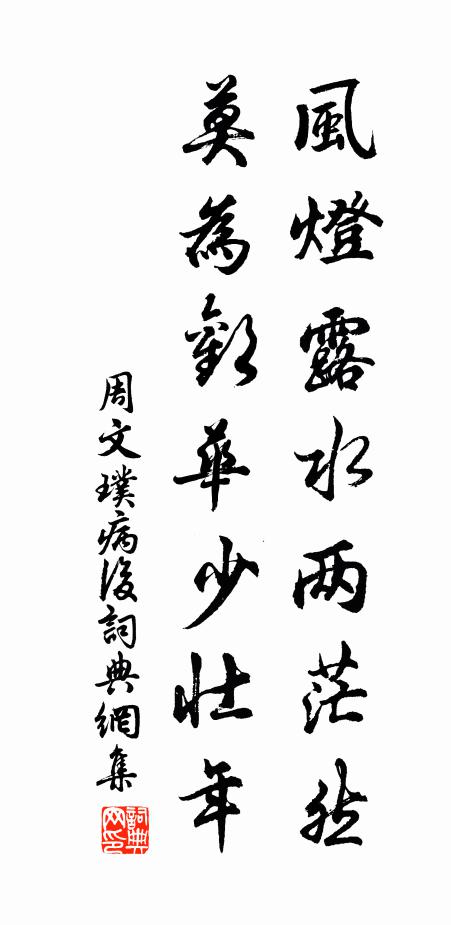 風燈露水两茫然
莫為歡華少壯年
周文璞病後詞典網集
詞典网印